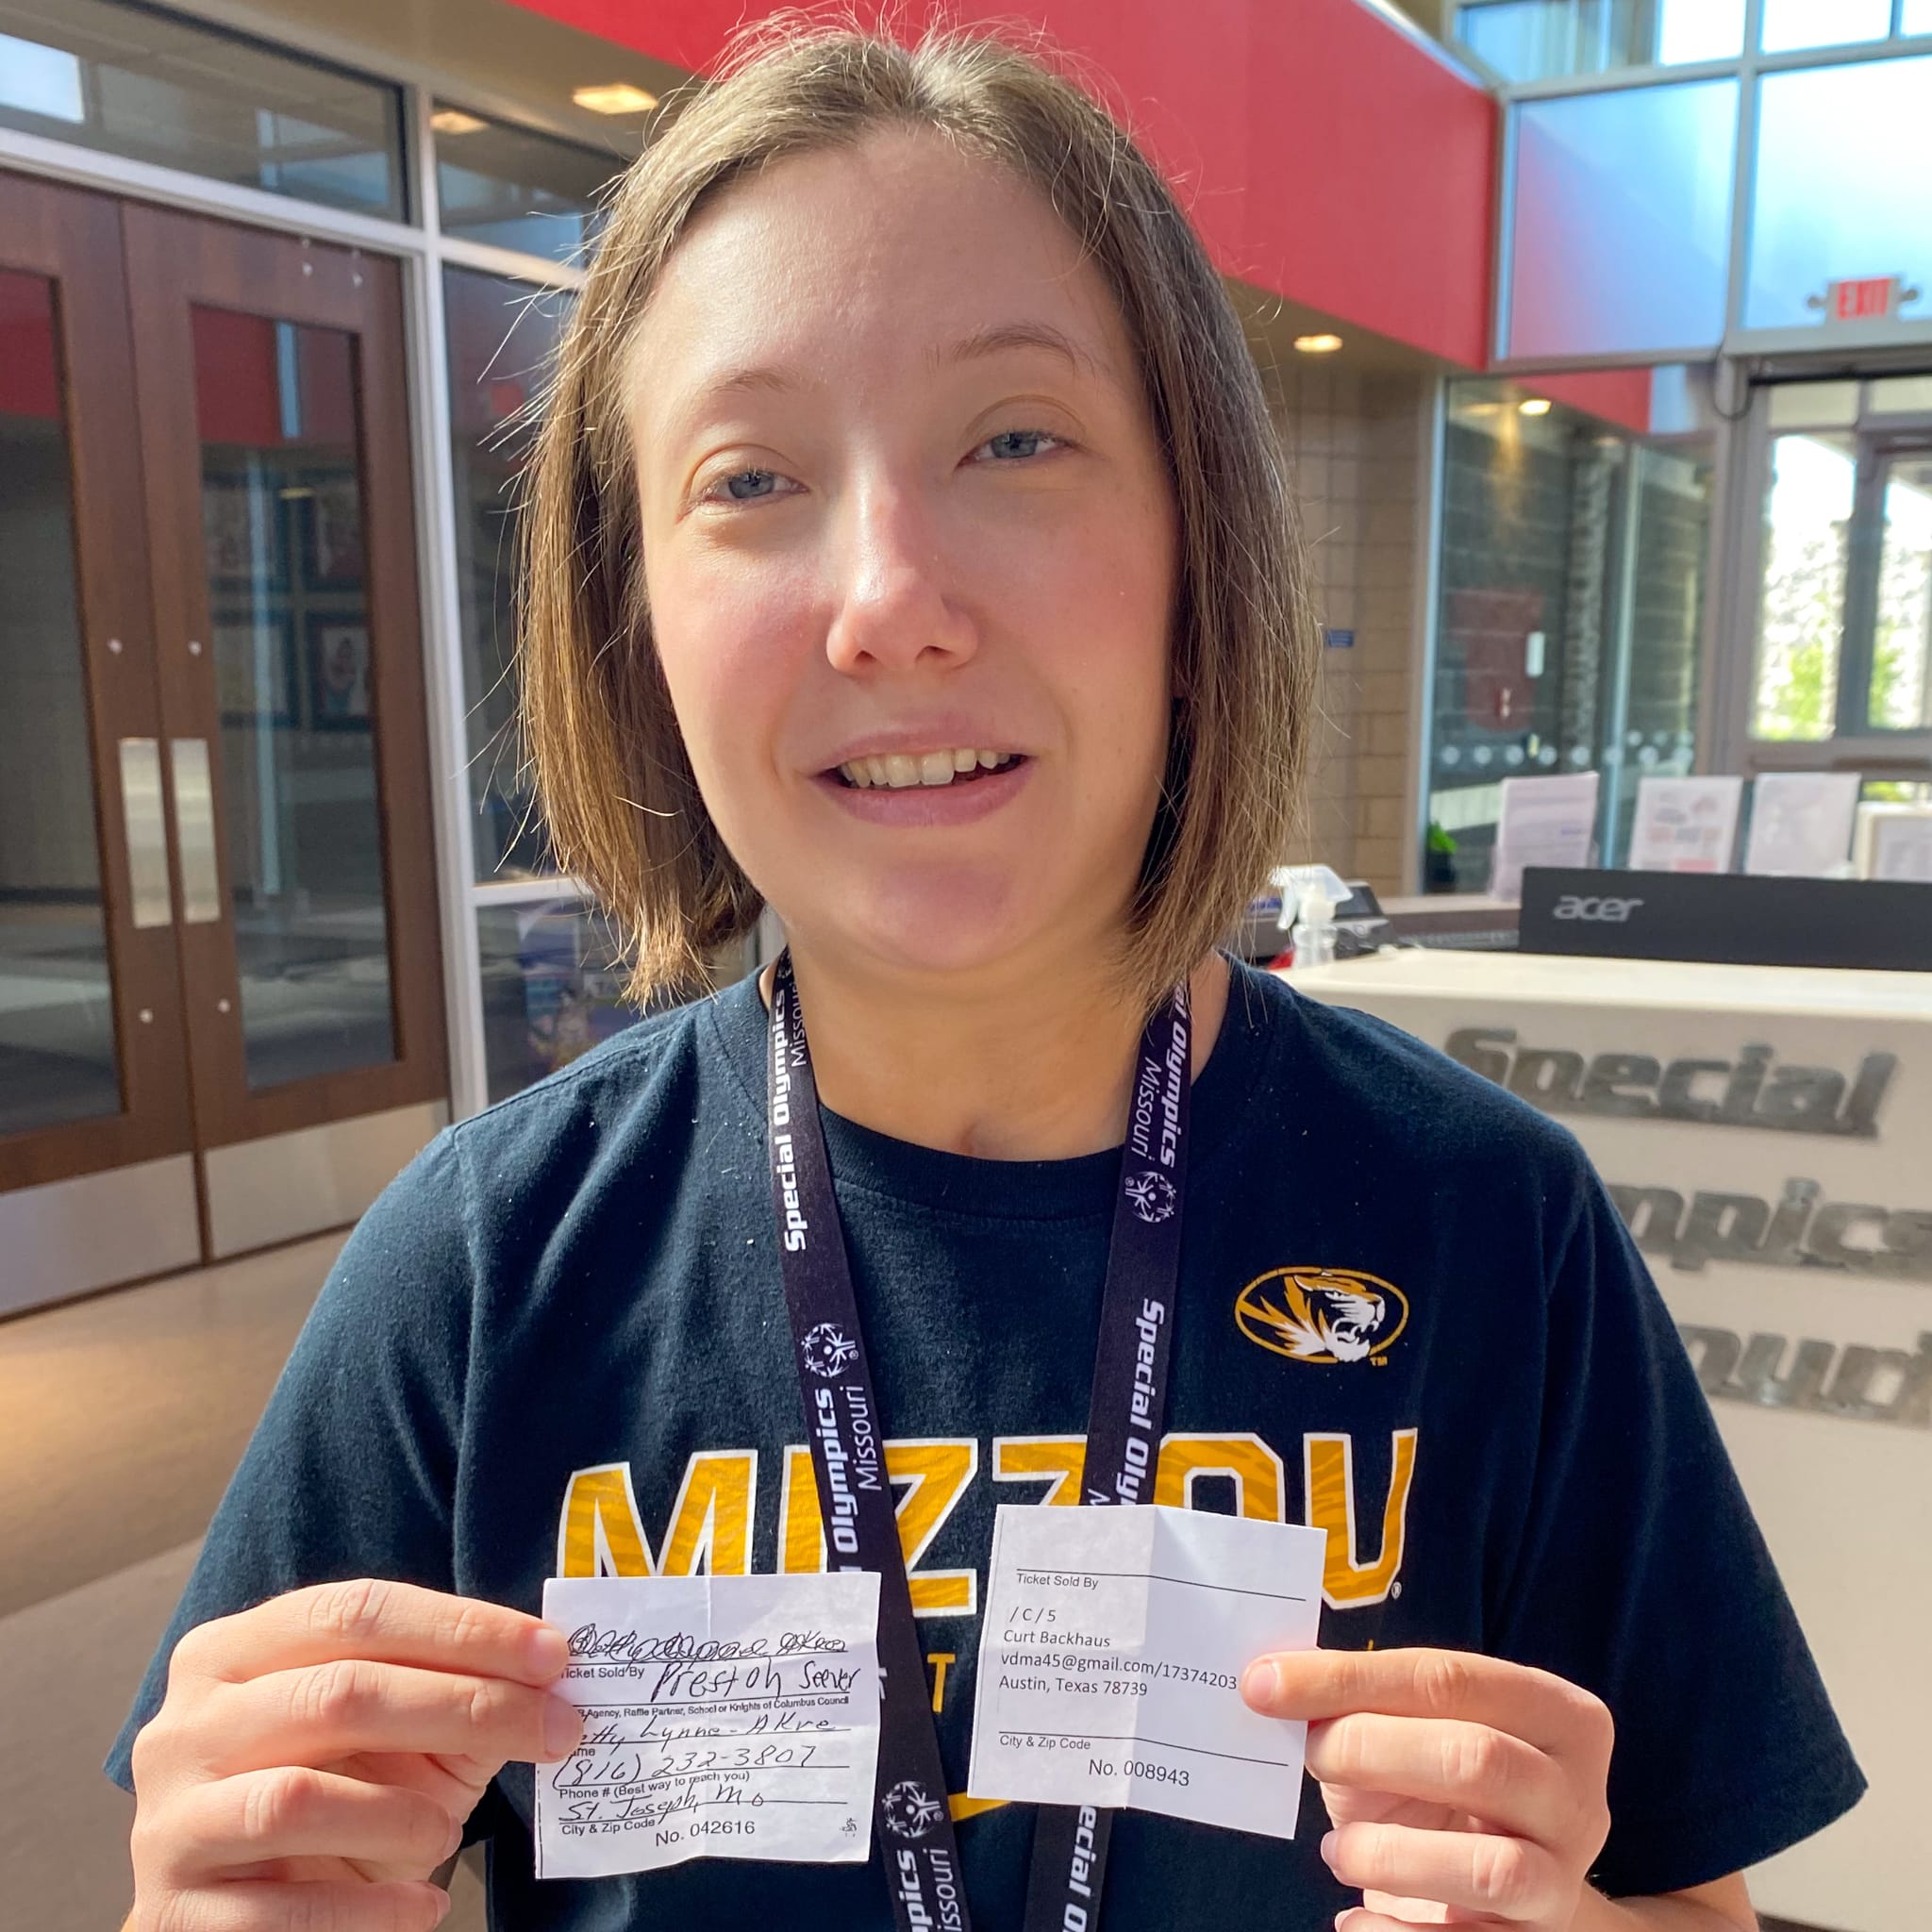 EXIT
acer
Special
mpics
ouri
Special Olympics
Missouri
al Olympics
Missouri
Special Olympics
Missouri
Special Oly
MIZZOU
Ticket Sold By
Preston Seever
Agency, Raffle Partner, School or Knights of Columbus Council
etty Lynne-AKre
ame
(816) 232-3807
Phone # (Best way to reach you)
St. Joseph, Mo
City & Zip Code
No. 042616
Ticket Sold By
/ C / 5
Curt Backhaus
vdma45@gmail.com/17374203
Austin, Texas 78739
City & Zip Code
No. 008943
pics
issouri
ecial O